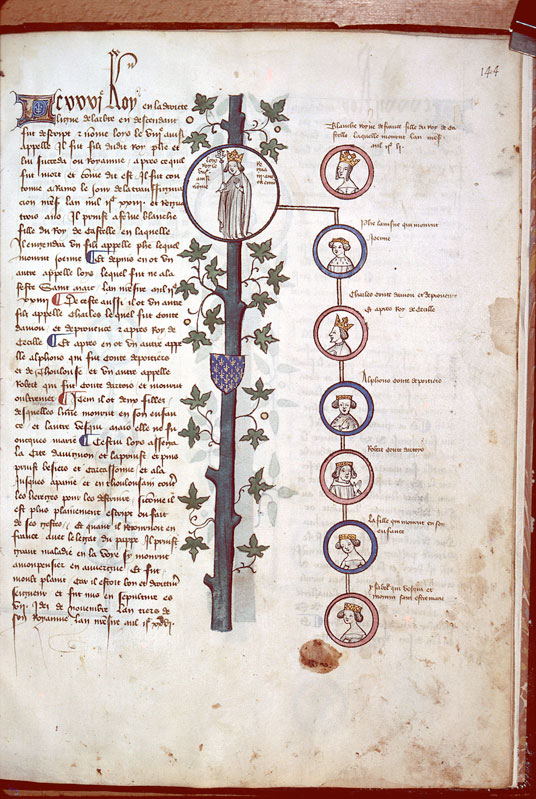 144
Roy en la droicte
ligne de larbre en descendant
appelle Il fut filz dudit roy phe et
lui succeda ou royaume apres ce que
fut mort et come dit est Il fut cou
ronne a Rains le jour de la
trois ans Il prinst a feme blanche
fille du Roy de Castelle en laquelle
Il engendra un filz appelle phe lequel
mourut joenne Et depuis en ot un
autre appelle loys lequel fut ne a la
feste Saint marc lan
De ceste aussi il ot un autre
filz appelle Charles lequel fut conte
daniou et de prouence et apres Roy de
Cecille Et apres en ot un autre appe
lle alphons qui fut conte de poitiers
et de Thoulouse et un autre appelle
Robert qui fut conte dartois et mourut
oultremer Item il ot deux filles
desquelles lune mourut en son enfan
ce et lautre mais elle ne fu
oncques mariee Cestui loys assega
la Cite davignon et la prinst et puis
prinst besiers et Carcassonne et ala
jusques a et en thoulousain contre
les hereges pour les destruire sicome il
est plus plainement escript ou fait
de ses gestes Et quant il retournoit en
france avec le legat du pappe Il prinst
grant maladie en la voye sy mourut
a monpensier en auvergne Et fut
moult plaint car il estoit bon et
seigneur et fut mis en sepulture
de novembre lan tiers de
son Royaume lan
Blanche royne de france fille du Roy de Ca
stelle laquelle mourut lan
loys
phe laisne qui mourut
joenne
Charles conte daniou et de prouence
Et apres Roy de Cecille
Alphons conte de poitiers
Robert conte dartois
La fille qui mourut en son
enfance
ysabel qui
mourut sans estre mariee